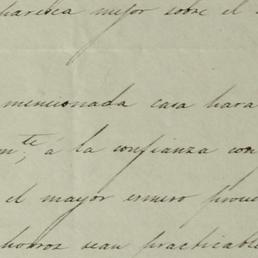 paresca mejor sobre el
mencionada casa para
te; á la confianza con
el mayor esmero
horros sean practicable